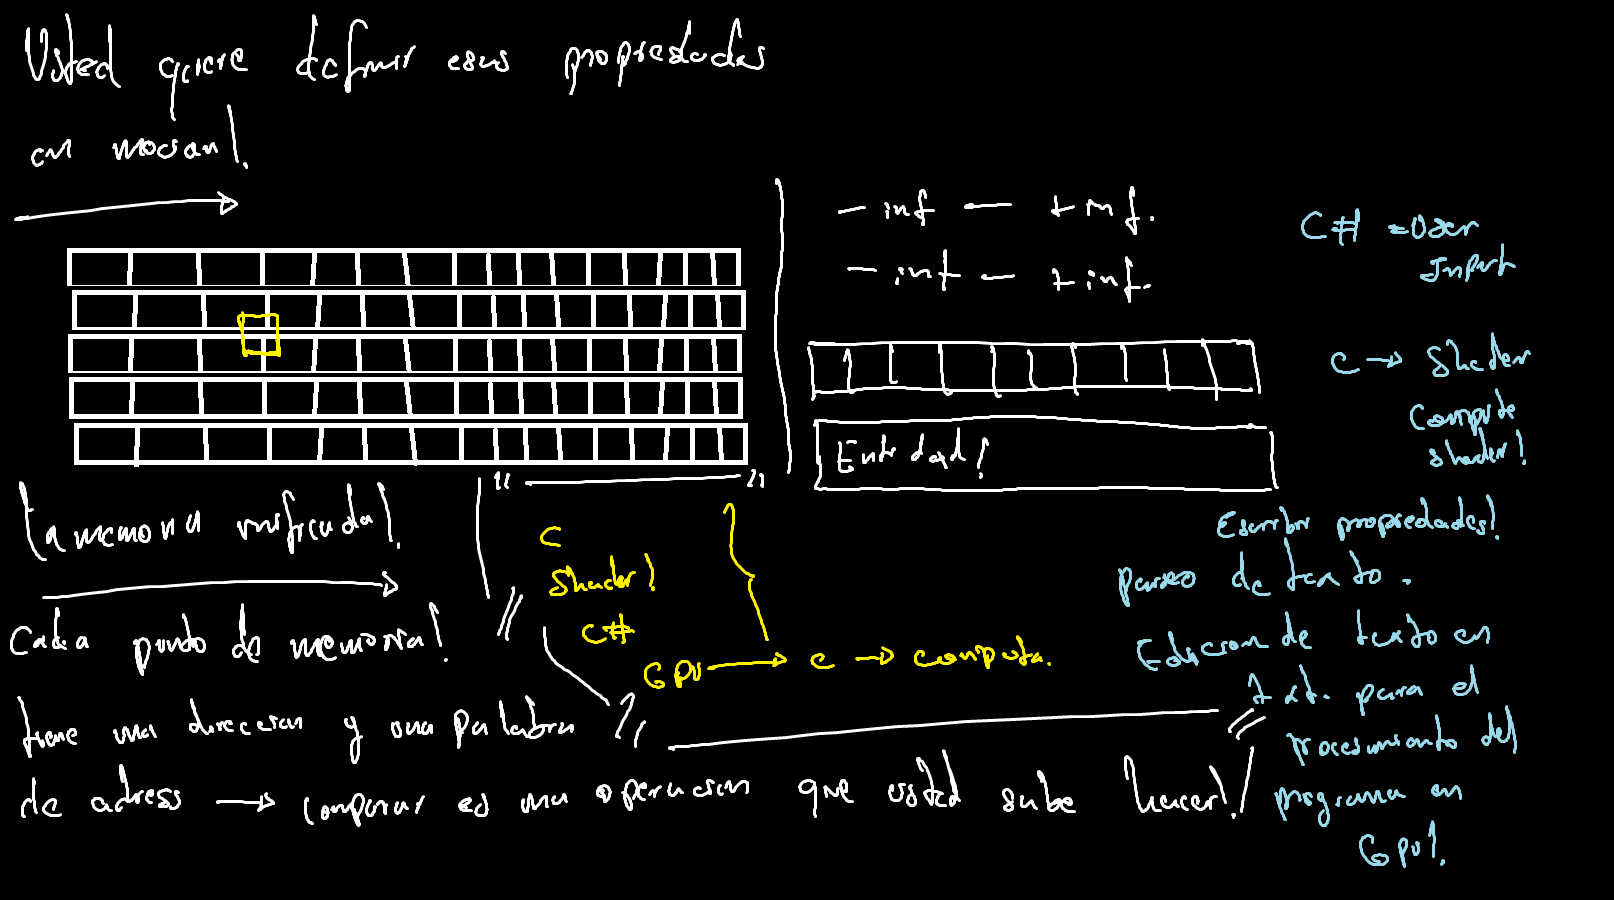 Usted quiere definir esas propiedades
en mocan!
- inf — + inf.
- inf — + inf.
Entidad!
C# = User
Input
C → Shader
Compute
shader!
Escribir propiedades!
parseo de texto.
Edicion de texto en
txt. para el
procesamiento del
programa en
Gpu!
La memoria unificada!
Cada punto de memoria!
tiene una direccion y una palabra
de adress → comparar es una operacion que usted sabe hacer!
C
Shader!
C#
GPU → C → computa.